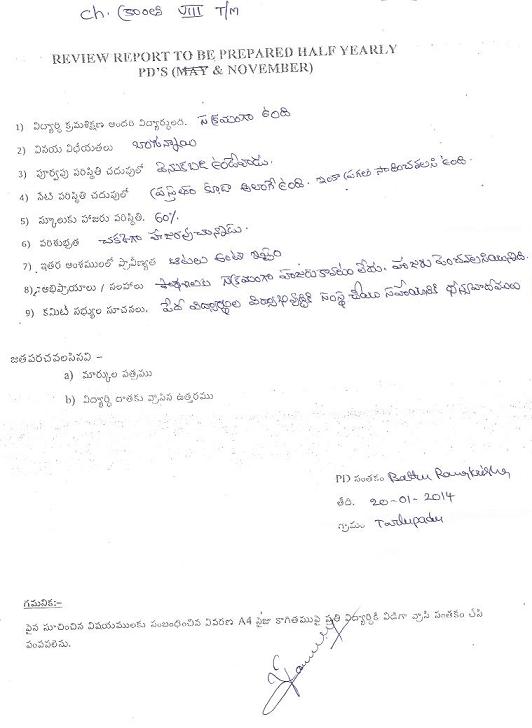 Ch. VIII T/M
REVIEW REPORT TO BE PREPARED HALF YEARLY
PD'S (MAY & NOVEMBER)
1) విద్యార్థి క్రమశిక్షణ అందరి విద్యార్థులది. సక్రమంగా ఉంది
2) వినయ విధేయతలు బాగున్నాయి
3) పూర్వపు పరిస్థితి చదువులో వెనుకబడి ఉండేవాడు.
4) నేటి పరిస్థితి చదువులో ప్రస్తుతం కూడా అలాంగే ఉంది. ఇంకా ప్రగతి సాధించవలసి ఉంది.
5) స్కూలుకు హాజరు పరిస్థితి. 60%
6) పరిశుభ్రత చక్కగా హాజరవుచున్నాడు.
7) ఇతర అంశములలో ప్రావీణ్యత ఆటలు అంటే ఇష్టం
8) అభిప్రాయాలు / సలహాలు సక్రమంగా హాజరు కావటం లేదు. హాజరు పెంచవలసియున్నది.
9) కమిటీ సభ్యుల సూచనలు. పేద విద్యార్థుల విద్యాభివృద్ధికి సంస్థ చేయు సహాయానికి ధన్యవాదములు
జతపరచవలసినవి –
a) మార్కుల పత్రము
b) విద్యార్థి దాతకు వ్రాసిన ఉత్తరము
PD సంతకం Battu Ramakrishna
తేది. 20-01-2014
గ్రామం Tarlupadu
గమనిక:–
పైన సూచించిన విషయములకు సంబంధించిన వివరణ A4 సైజు కాగితముపై ప్రతి విద్యార్థికి విడిగా వ్రాసి సంతకం చేసి
పంపవలెను.